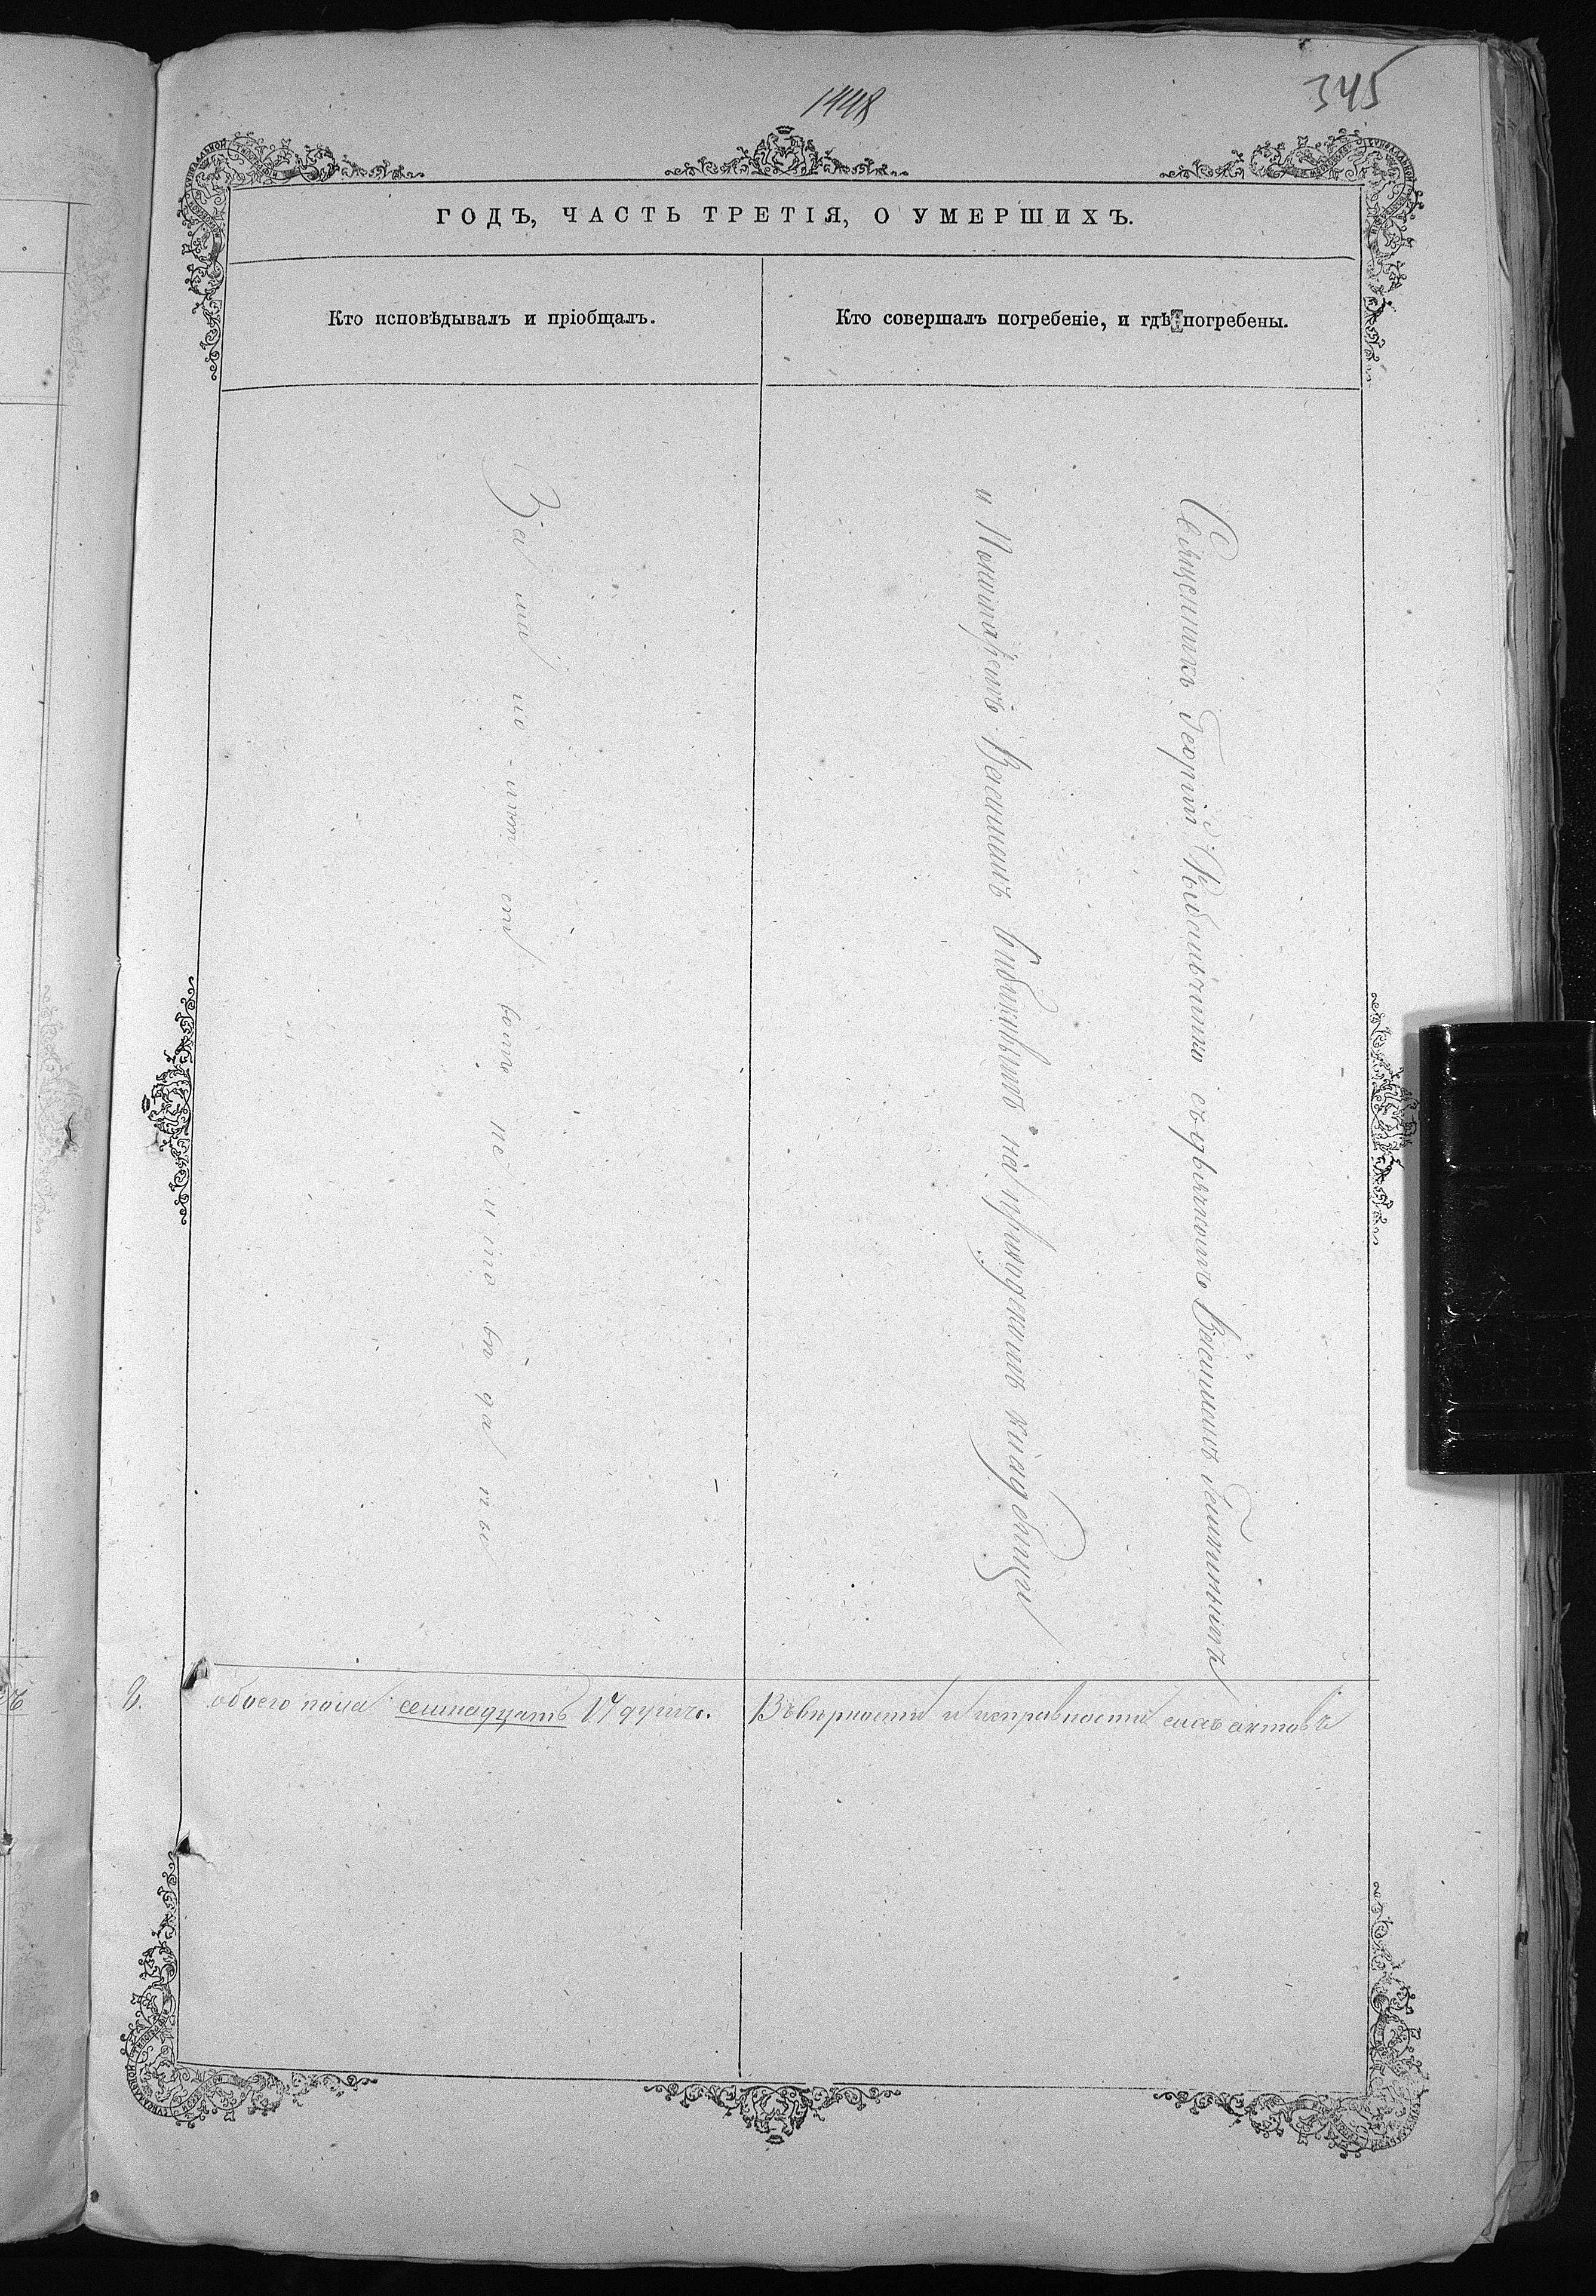 1448
345
ГОДЪ, ЧАСТЬ ТРЕТІЯ, О УМЕРШИХЪ.
Кто исповѣдывалъ и пріобщалъ.
Кто совершалъ погребеніе, и гдѣ погребены.
За мало-лѣтствомъ не исповѣданы
Священникъ Георгій Кибальчичъ съ дьячкомъ Василіемъ
и Пономаремъ Василіемъ на приходскомъ кладбищѣ
обоего пола семнадцать 17 душъ.
Въ вѣрности и исправности сихъ актовъ